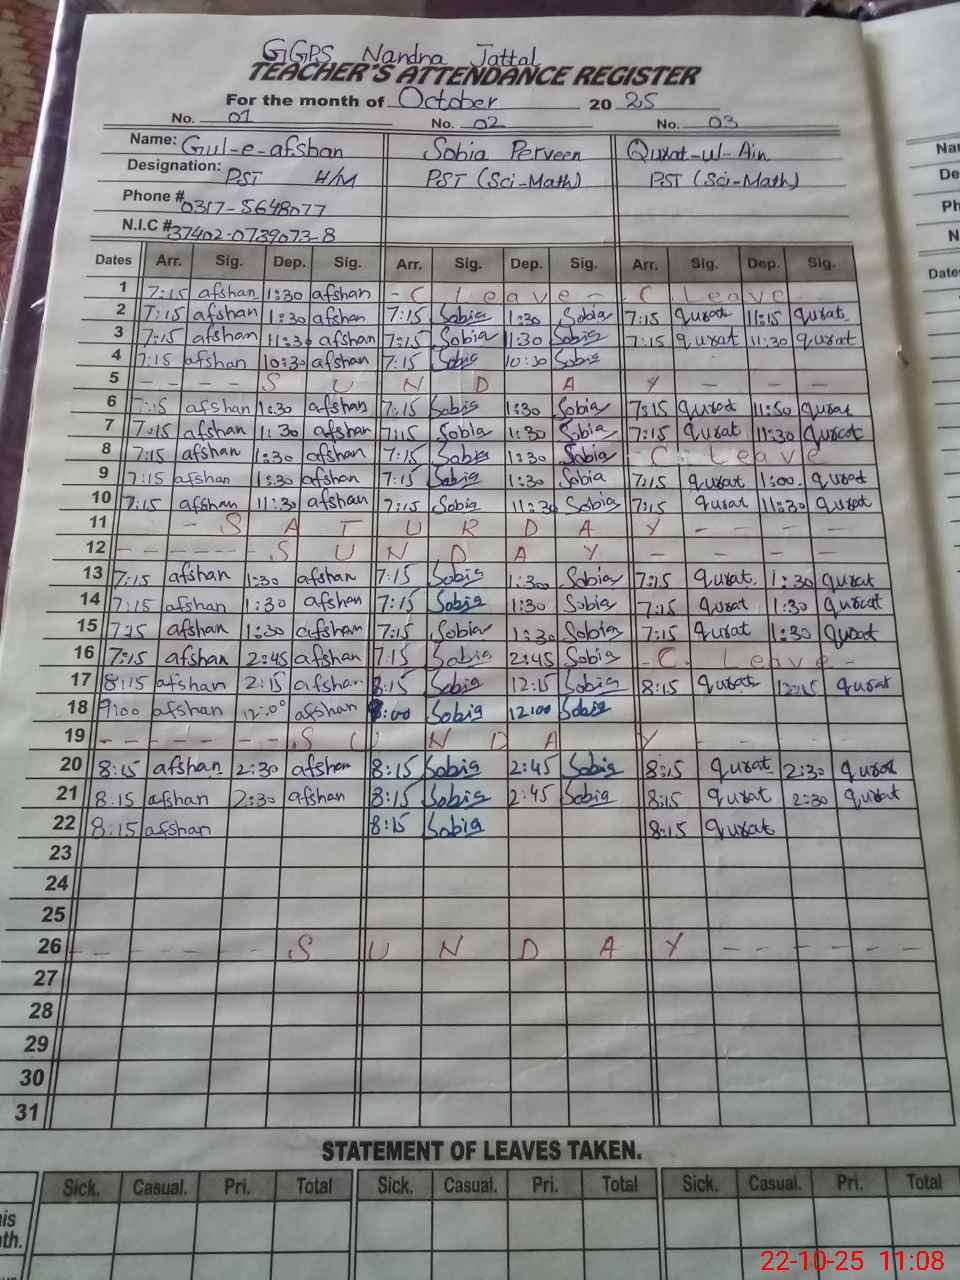 GGPS Nandna Jattal
TEACHER'S ATTENDANCE REGISTER
For the month of October 20 25
No. 01 No. 02 No. 03
Name: Gul-e-afshan Sobia Perveen Qurat-ul-Ain
Designation: PST H/M PST (Sci-Math) PST (Sci-Math)
Phone # 0317-5648077
N.I.C # 37402-0739073-8
Dates Arr. Sig. Dep. Sig. Arr. Sig. Dep. Sig. Arr. Sig. Dep. Sig.
1 7:15 afshan 1:30 afshan - C Leave - C Leave
2 7:15 afshan 1:30 afshan 7:15 Sobia 1:30 Sobia 7:15 qurat 11:15 qurat
3 7:15 afshan 11:30 afshan 7:15 Sobia 11:30 Sobia 7:15 qurat 11:30 qurat
4 7:15 afshan 10:30 afshan 7:15 Sobia 10:30 Sobia
5 - - - - S U N D A Y - - -
6 7:15 afshan 1:30 afshan 7:15 Sobia 1:30 Sobia 7:15 qurat 11:50 qurat
7 7:15 afshan 11:30 afshan 7:15 Sobia 11:30 Sobia 7:15 qurat 11:30 qurat
8 7:15 afshan 1:30 afshan 7:15 Sobia 1:30 Sobia - C. Leave
9 7:15 afshan 1:30 afshan 7:15 Sobia 1:30 Sobia 7:15 qurat 1:00 qurat
10 7:15 afshan 11:30 afshan 7:15 Sobia 11:30 Sobia 7:15 qurat 11:30 qurat
11 - - S A T U R D A Y - - - -
12 - - - - - - S U N D A Y - - - -
13 7:15 afshan 1:30 afshan 7:15 Sobia 1:30 Sobia 7:15 qurat 1:30 qurat
14 7:15 afshan 1:30 afshan 7:15 Sobia 1:30 Sobia 7:15 qurat 1:30 qurat
15 7:15 afshan 1:30 afshan 7:15 Sobia 1:30 Sobia 7:15 qurat 1:30 qurat
16 7:15 afshan 2:45 afshan 7:15 Sobia 2:45 Sobia - C. Leave -
17 8:15 afshan 2:15 afshan 8:15 Sobia 12:15 Sobia 8:15 qurat 12:15 qurat
18 9:00 afshan 12:00 afshan :00 Sobia 12:00 Sobia
19 - - - - - - - S U N D A Y - - - -
20 8:15 afshan 2:30 afshan 8:15 Sobia 2:45 Sobia 8:15 qurat 2:30 qurat
21 8:15 afshan 2:30 afshan 8:15 Sobia 2:45 Sobia 8:15 qurat 2:30 qurat
22 8:15 afshan 8:15 Sobia 8:15 qurat
23
24
25
26 - - - - - - S U N D A Y - - - - - - -
27
28
29
30
31
STATEMENT OF LEAVES TAKEN.
Sick. Casual. Pri. Total Sick. Casual. Pri. Total Sick. Casual. Pri. Total
22-10-25 11:08